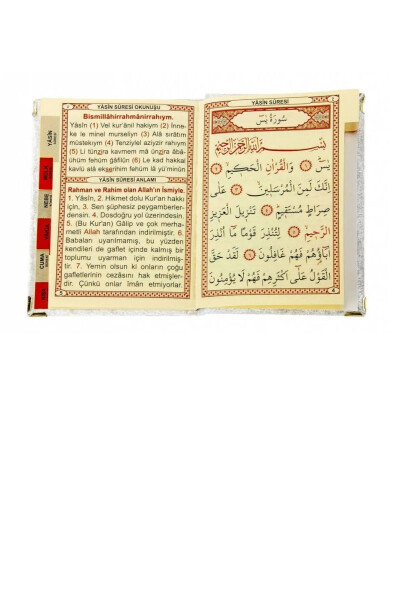 YÂSİN SÛRESİ OKUNUŞU
Bismillâhirrahmânirrahıym.
Yâsîn (1) Vel kur'ânil hakıym (2) İnne-
ke le minel murseliyn (3) Alâ sırâtım
müstekıym (4) Tenziylel aziyzir rahıym
(5) Li tünzira kavmem mâ ünzira âbâ-
ühüm fehüm gâfilûn (6) Le kad hakkal
kavlü alâ ekserihim fehüm lâ yü'minûn
YÂSİN SÛRESİ ANLAMI
Rahman ve Rahim olan Allah'ın İsmiyle.
1. Yâsîn, 2. Hikmet dolu Kur'an hakkı
için, 3. Sen şüphesiz peygamberler-
densin. 4. Dosdoğru yol üzerindesin.
5. (Bu Kur'an) Gâlip ve çok merha-
metli Allah tarafından indirilmiştir. 6.
Babaları uyarılmamış, bu yüzden
kendileri de gaflet içinde kalmış bir
toplumu uyarman için indirilmiş-
tir. 7. Yemin olsun ki onların çoğu
gafletlerinin cezasını hak etmişler-
dir. Çünkü onlar îmân etmiyorlar.
YÂSÎN
NEBE
CUMA
YÂSİN SÛRESİ
سُورَةُ يٰسٓ
بِسْمِ اللّٰهِ الرَّحْمٰنِ الرَّحِيمِ
يٰسٓ ﴿١﴾ وَالْقُرْاٰنِ الْحَكِيمِ ﴿٢﴾
اِنَّكَ لَمِنَ الْمُرْسَلِينَ ﴿٣﴾ عَلٰى
صِرَاطٍ مُسْتَقِيمٍ ﴿٤﴾ تَنْزِيلَ الْعَزِيزِ
الرَّحِيمِ ﴿٥﴾ لِتُنْذِرَ قَوْمًا مَٓا اُنْذِرَ
اٰبَٓاؤُهُمْ فَهُمْ غَافِلُونَ ﴿٦﴾ لَقَدْ حَقَّ
الْقَوْلُ عَلٰٓى اَكْثَرِهِمْ فَهُمْ لَا يُؤْمِنُونَ